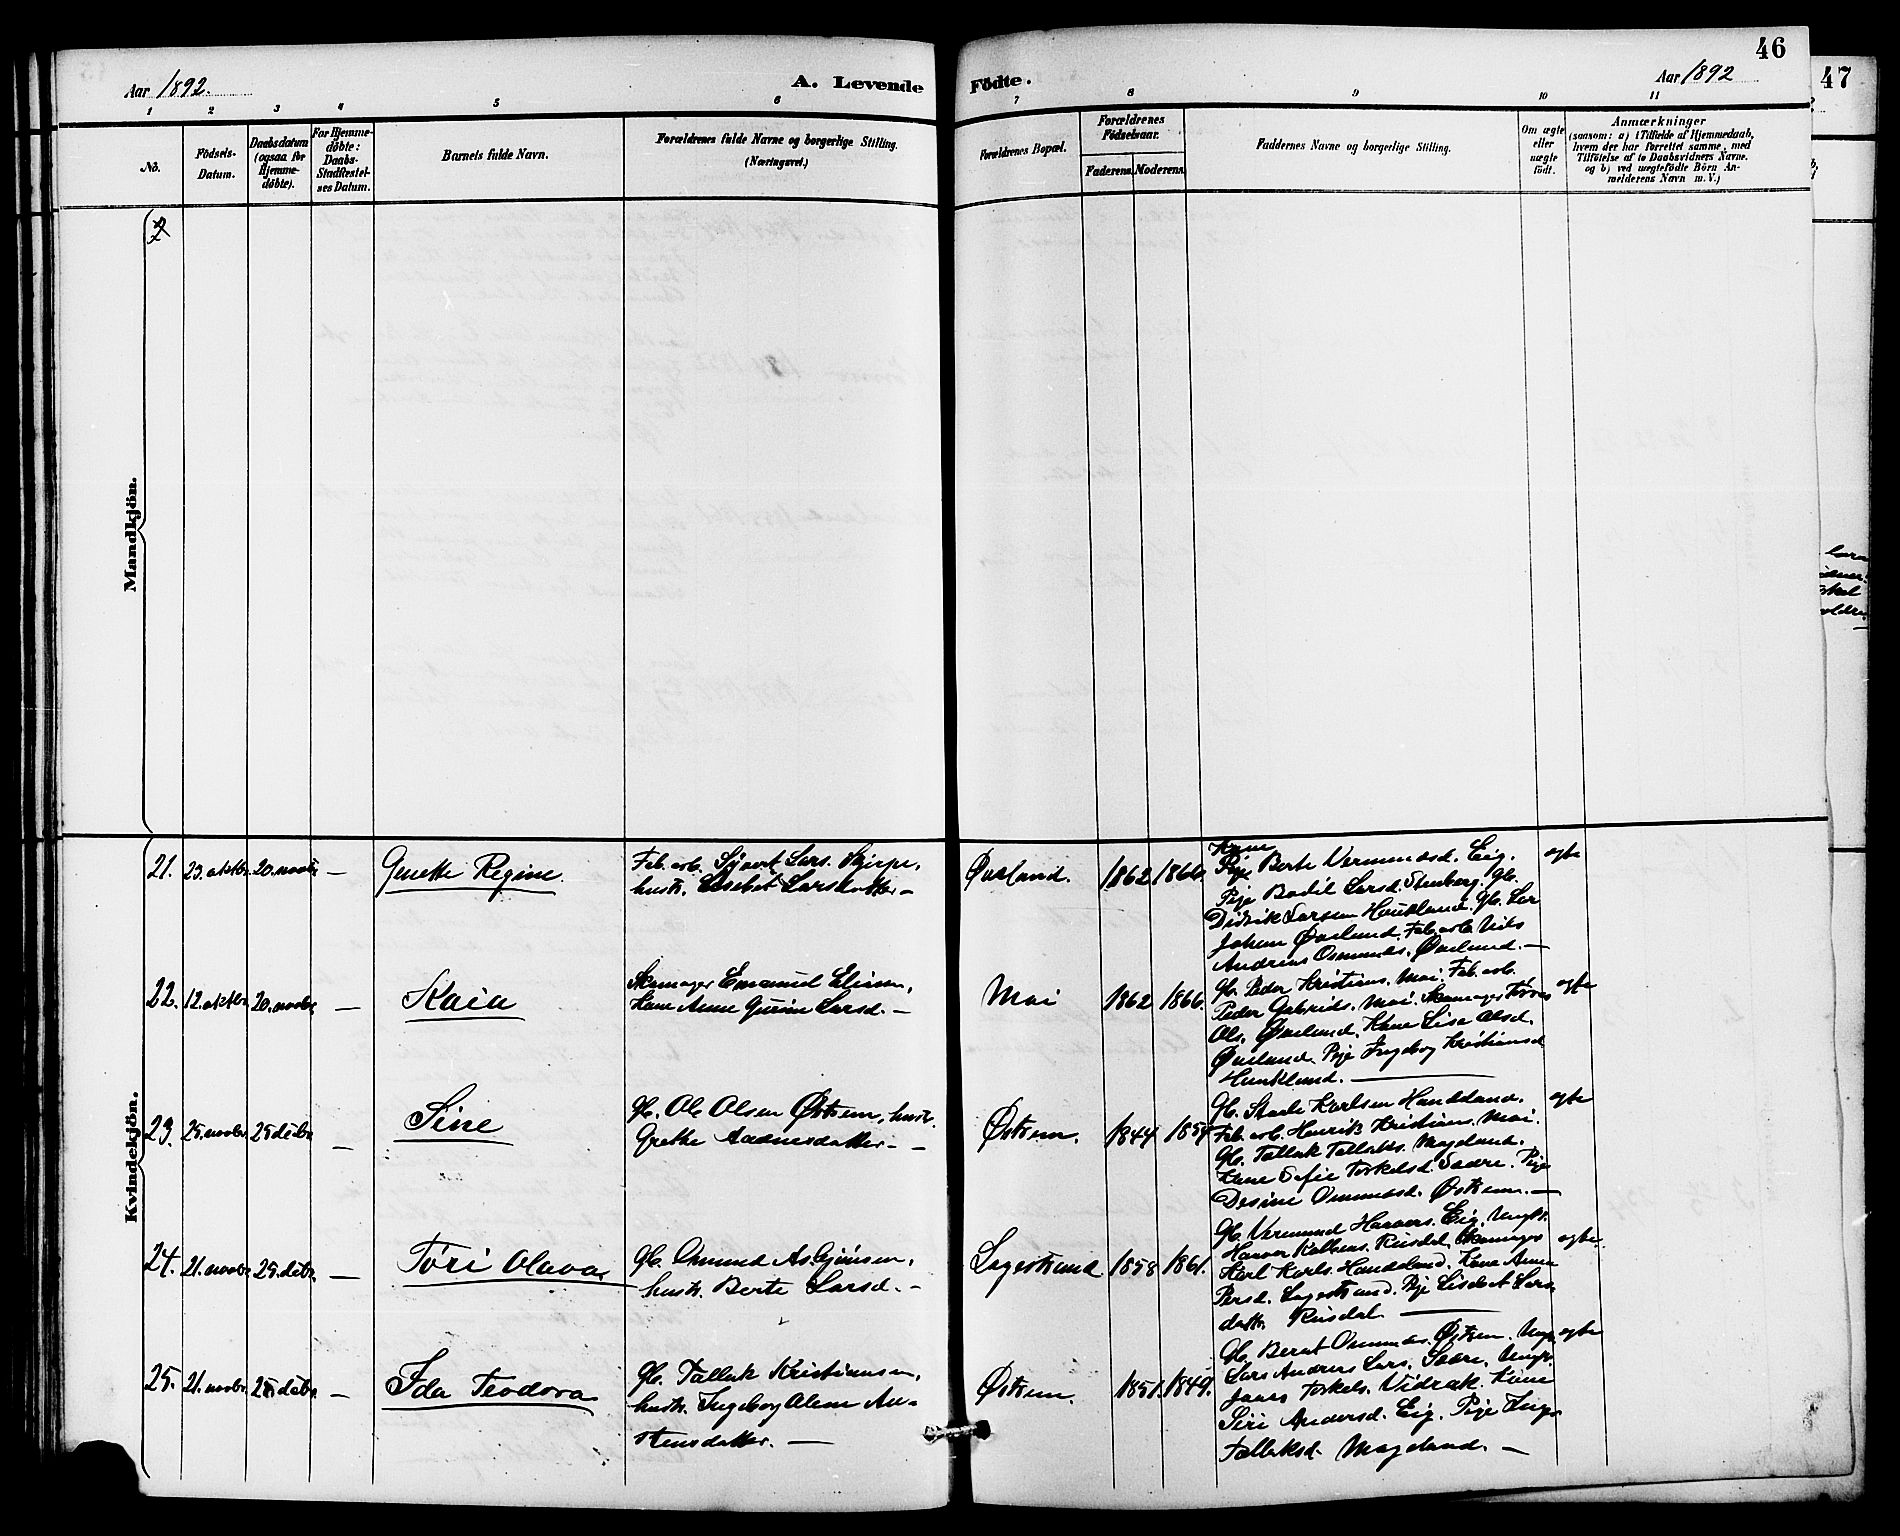 46
47
Aar 1892.
A. Levende Födte.
Aar 1892
1 2 3 4 5 6 7 8 9 10 11
No.
Födsels-Datum.
Daabsdatum (ogsaa for Hjemme-döbte).
For Hjemme-döbte: Daabs-Stadfæstel-ses Datum.
Barnets fulde Navn.
Forældrenes fulde Navne og borgerlige Stilling.
(Næringsvei.)
Forældrenes Bopæl.
Forældrenes Födselsaar.
Faderens. Moderens.
Faddernes Navne og borgerlige Stilling.
Om ægte eller uægte födt.
Anmærkninger
(saasom: a) i Tilfælde af Hjemmedaab,
hvem der har forrettet samme, med
Tilföielse af to Daabsvidners Navne.
og b) ved uægtefödte Börn An-
melderens Navn m. V.)
Mandkjön.
Kvindekjön.
21. 23. oktbr. 20. novbr. — Genette Regine.
Fab. arb. Sijvert Lars. Skjerpe,
hustr. Lisebet Larsdatter —
Øvsland. 1862 1866.
Kone
Pige Berte Vermundsd. Eig.
Pige Bodil Larsd. Stenberg. Gb.
Didrik Larsen Haukland. Gb. Lar
Johan Øvsland. Fab. arb. Nils
Andreas Ommunds. Øvsland. —
ægte
22. 12. oktbr. 20. novbr. — Kaia
Skomager Emanuel Eliasen,
Kone Anne Gurine Larsd. —
Moi 1862 1866.
Gb. Peder Kristians. Moi. Fab. arb.
Peder Gabriels. Moi. Skomager Tørres
Ols. Øvsland. Kone Lise Olsd.
Øvsland. Pige Ingeborg Kristiansd.
Haukland. —
ægte
23. 25. novbr. 25. decbr. — Sine
Gb. Ole Olsen Østrem, hustr.
Grethe Aadnesdatter. —
Østrem. 1844 1854
Gb. Karlsen Handeland.
Fab. arb. Henrik Kristians. Moi.
Gb. Tallak Tallaks. Mageland.
Kone Sofie Torkelsd. Saare. Pige
Desine Ommundsd. Østrem. —
ægte
24. 21. novbr. 25. decbr. — Tori Olava
Gb. Ommund Asbjørnsen,
hustr. Berte Larsd. —
Lagestrand 1858 1861.
Gb. Vermund Eig. Ungk.
Rusdal. Skomager
Karl Karls. Handeland. Kone Anne
Persd. Lagestrand. Pige Lisebet Lars
datter Rusdal. —
ægte.
25. 21. novbr. 25. decbr. — Ida Teodora
Gb. Tallak Kristiansen,
hustr. Ingeborg Olene Au-
stensdatter. —
Østrem. 1851. 1849.
Gb. Berent Ommunds. Østrem. Ungk.
Lars Andreas Lars. Saare. Ungk.
Jonas Torkels. Vidrak. Kone
Siri Andersd. Eig. Pige Inger
Tallaksd. Mageland. —
ægte